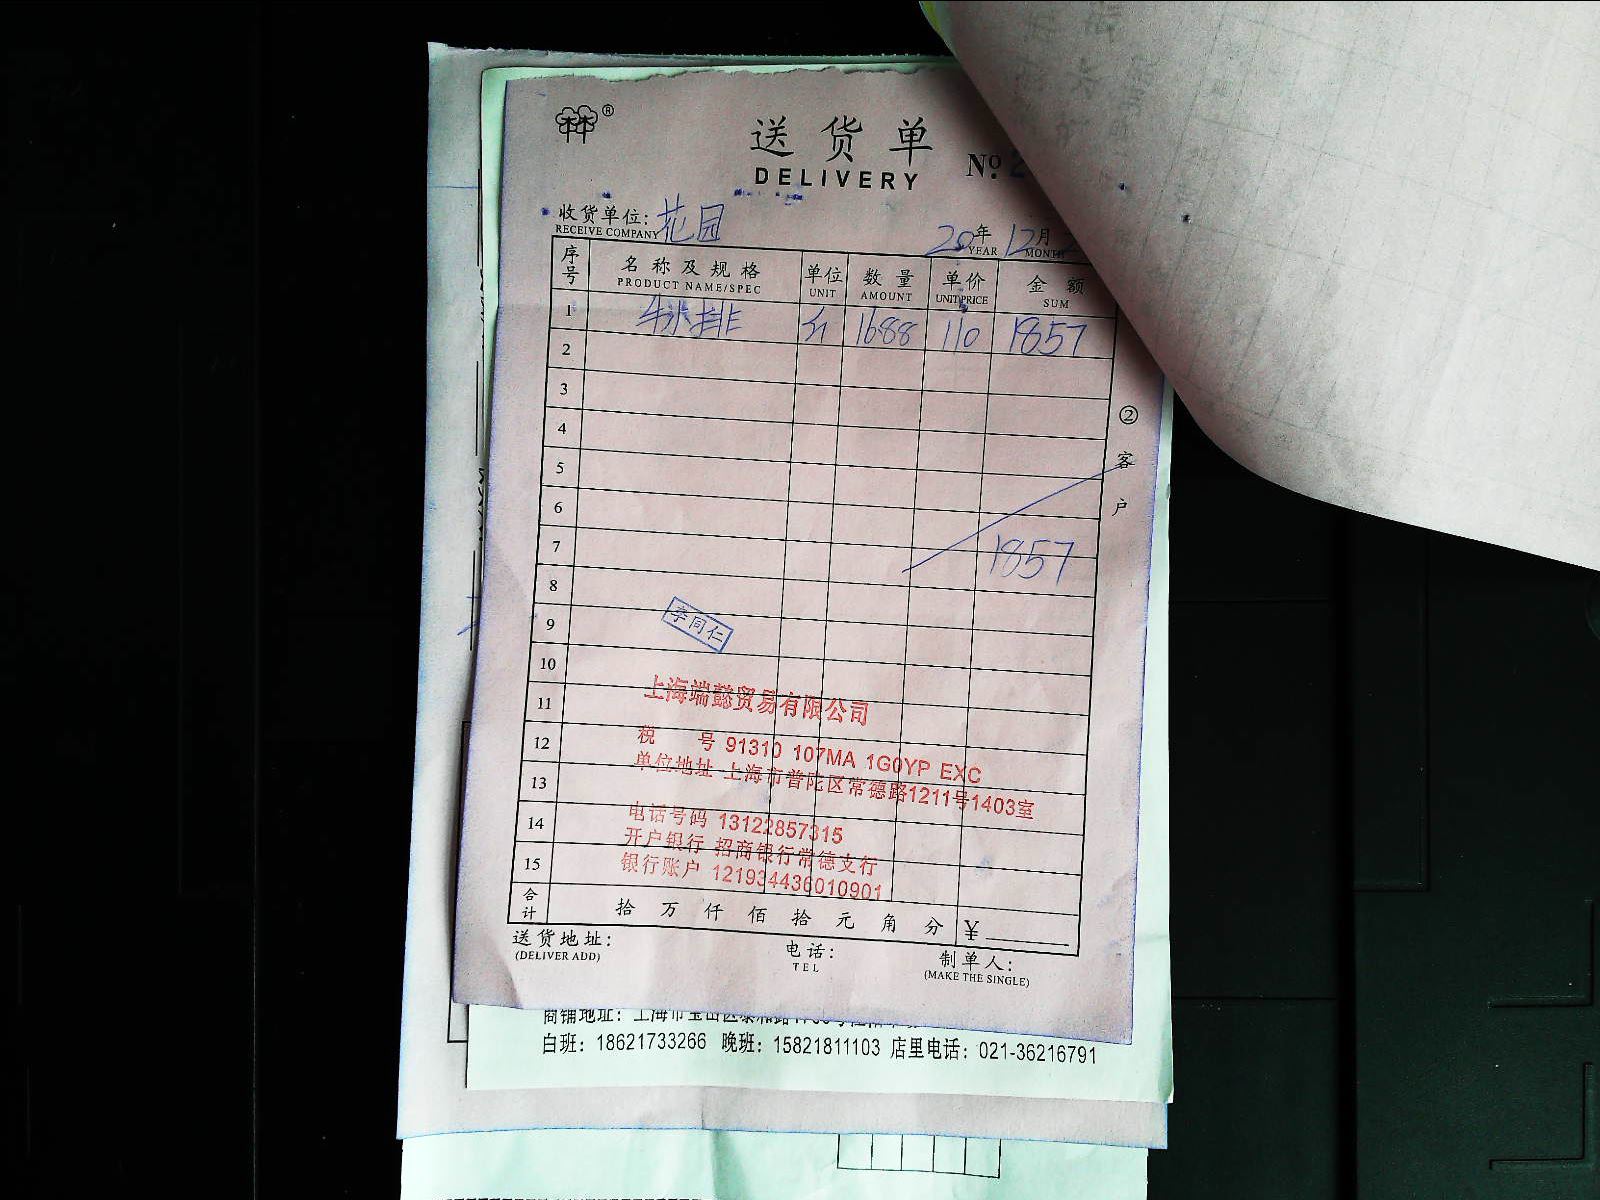 ®
送货单
DELIVERY
No. 2
收货单位: 花园
RECEIVE COMPANY
20年 12月
YEAR MONTH
序号 名称及规格 单位 数量 单价 金额
PRODUCT NAME/SPEC UNIT AMOUNT UNIT PRICE SUM
1 牛排 斤 1688 110 1857
2
3
4
5
6
7 1857
8
9
10
11
12
13
14
15
② 客户
李同仁
上海端懿贸易有限公司
税 号 91310 107MA 1G0YP EXC
单位地址 上海市普陀区常德路1211号1403室
电话号码 13122857315
开户银行 招商银行常德支行
银行账户 121934436010901
合计 拾 万 仟 佰 拾 元 角 分 ¥
送货地址: 电话: 制单人:
(DELIVER ADD) TEL (MAKE THE SINGLE)
商铺地址: 上海市宝山区
白班: 18621733266 晚班: 15821811103 店里电话: 021-36216791